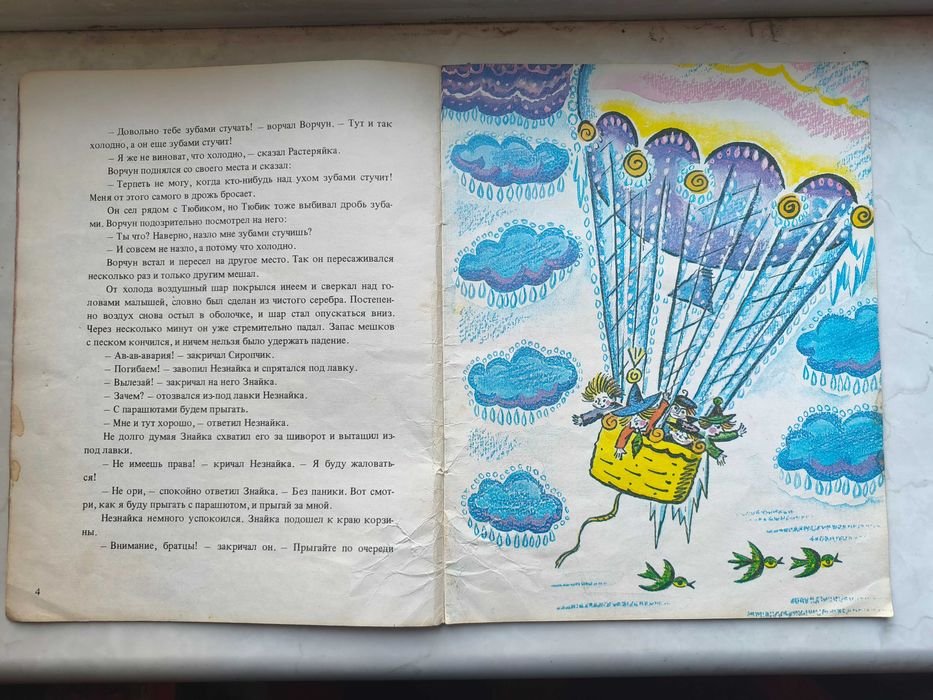 – Довольно тебе зубами стучать! – ворчал Ворчун. – Тут и так
холодно, а он еще зубами стучит!
– Я же не виноват, что холодно, – сказал Растеряйка.
Ворчун поднялся со своего места и сказал:
– Терпеть не могу, когда кто-нибудь над ухом зубами стучит!
Меня от этого самого в дрожь бросает.
Он сел рядом с Тюбиком, но Тюбик тоже выбивал дробь зуба-
ми. Ворчун подозрительно посмотрел на него:
– Ты что? Наверно, назло мне зубами стучишь?
– И совсем не назло, а потому что холодно.
Ворчун встал и пересел на другое место. Так он пересаживался
несколько раз и только другим мешал.
От холода воздушный шар покрылся инеем и сверкал над го-
ловами малышей, словно был сделан из чистого серебра. Постепен-
но воздух снова остыл в оболочке, и шар стал опускаться вниз.
Через несколько минут он уже стремительно падал. Запас мешков
с песком кончился, и ничем нельзя было удержать падение.
– Ав-ав-авария! – закричал Сиропчик.
– Погибаем! – завопил Незнайка и спрятался под лавку.
– Вылезай! – закричал на него Знайка.
– Зачем? – отозвался из-под лавки Незнайка.
– С парашютами будем прыгать.
– Мне и тут хорошо, – ответил Незнайка.
Не долго думая Знайка схватил его за шиворот и вытащил из-
под лавки.
– Не имеешь права! – кричал Незнайка. – Я буду жаловать-
ся!
– Не ори, – спокойно ответил Знайка. – Без паники. Вот смот-
ри, как я буду прыгать с парашютом, и прыгай за мной.
Незнайка немного успокоился. Знайка подошел к краю корзи-
ны.
– Внимание, братцы! – закричал он. – Прыгайте по очереди
4